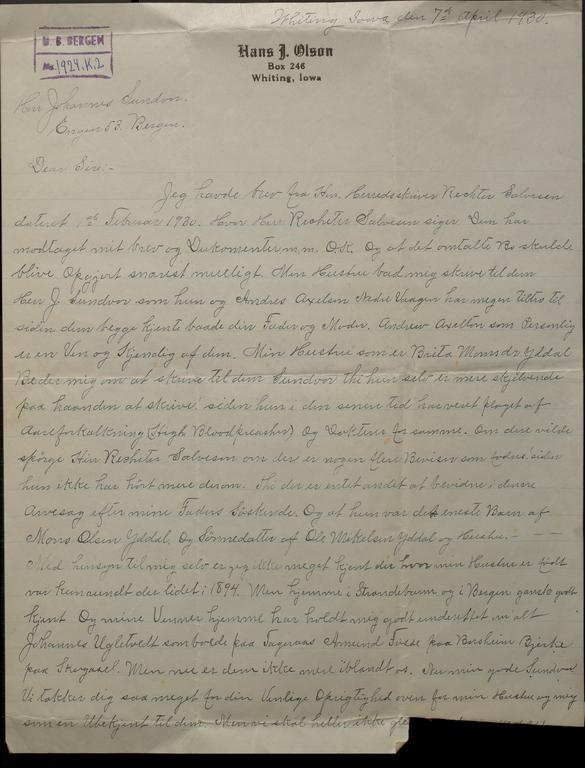 Whiting Iowa den 7de April 1930.
U. B. BERGEN
No. 1924. K. 2
Hans J. Olson
Box 246
Whiting, Iowa
Herr Johannes Sundvor.
Engen 53. Bergen.
Dear Sire:-
Jeg havde brev fra Hr. Herredsskriver Rechter Salvesen
dateret 1ste Februar 1930. Hvor Herr Recheter Salvesen siger Dem har
modtaget mit brev og Dukomenter m.m. O.K. Og at det omtalte Bo skulde
blive Opgjort snarest muelligt. Min Hustrue bad mig skrive til dem
Herr J. Sundvor som hun og Andres Axelson Nedre Vaagen har megen tiltro til
siden dem begge kjente baade din Fader og Moder. Andrew Axelton som Personlig
er en Ven og Kjending af dem. Min Hustrue som er Brita Monsdr Yddal
Beder mig om at skrive til dem Sundvor thi hun selv er mere skjelvende
paa haanden at skrive! siden hun i den senere tid har veret plaget af
Aareforkalkning (High Bloodpreasher) Og Dokterer for samme. Om dere vilde
spörge Herr Recheter Salveson om der er nogen flere Beviser som siden
hun ikke har hört mere derom. Thi der er entet andet at bevidne i denne
Arvesag efter mine Faders Söskende. Og at hun var det eneste Barn af
Mons Olsen Yddal. Og Sönnedatter af Ole Mikelsen Yddal og Hustrue. - - -
Med hensyn til mig selv er jeg ikke meget kjent der hvor min Hustrue er födt
var kun rundt der lidet i 1894. Men hjemme i Strandebarm og i Bergen ganske godt
kjent Og mine Venner hjemme har holdt mig godt underrettet om alt
Johannes Ugletvedt som boede paa Fageraas Amund Tvese paa Berheim Bjerke
paa Skogasel. Men nu er dem ikke mere iblandt os. Nu min gode Sundvor
Vi takker dig saa meget for din Venlige Oprigtighed over for min Hustrue og mig
som en Ubekjent til dem. Men vi skal heller ikke